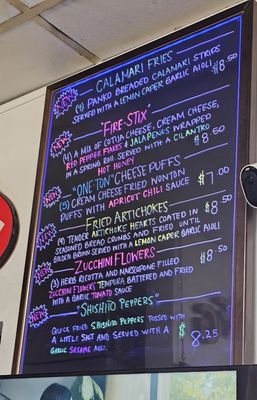 CALAMARI FRIES
NEW
(4) PANKO BREADED CALAMARI STRIPS
SERVED WITH A LEMON CAPER GARLIC AIOLI $8.50
"FIRE-STIX"
NEW
(4) A MIX OF COTIJA CHEESE, CREAM CHEESE,
RED PEPPER FLAKES & JALAPENOS WRAPPED
IN A SPRING ROLL SERVED WITH A CILANTRO
HOT HONEY $8.50
"ONE-TON" CHEESE PUFFS
NEW
(5) CREAM CHEESE FRIED WONTON
PUFFS WITH APRICOT CHILI SAUCE $7.00
FRIED ARTICHOKES
NEW
TENDER ARTICHOKE HEARTS COATED IN $8.50
SEASONED BREAD CRUMBS AND FRIED UNTIL
GOLDEN BROWN SERVED WITH A LEMON CAPER GARLIC AIOLI
ZUCCHINI FLOWERS $8.50
NEW
(3) HERB RICOTTA AND MARSCAPONE FILLED
ZUCCHINI FLOWERS TEMPURA BATTERED AND FRIED
WITH A GARLIC TOMATO SAUCE
"SHISHITO PEPPERS"
NEW
QUICK FRIED SHISHITO PEPPERS TOSSED WITH
A LITTLE SALT AND SERVED WITH A $8.25
GARLIC SESAME AIOLI